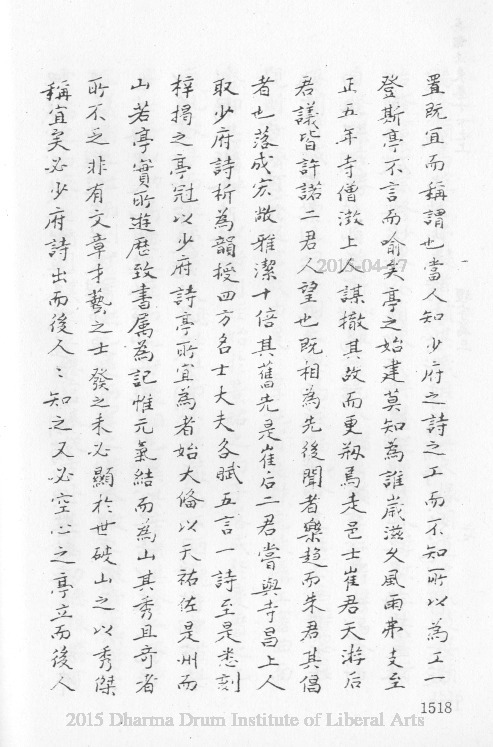 置既宜而稱謂也當人知少府之詩之工而不知所以為工一
登斯亭不言而喻矣亭之始建莫知為誰歲滋久風雨弗支至
正五年寺僧澂上人謀撤其故而更剏焉走邑士崔君天游后
君議皆許諾二君人望也既相為先後聞者樂趋而朱君其倡
者也落成宏敞雅潔十倍其舊先是崔后二君嘗與寺昌上人
取少府詩析為韻授四方名士大夫各賦五言一詩至是悉刻
梓揭之亭冠以少府詩亭所宜為者始大俻以天祐佐是州而
山若亭實所遊歷致書属為記惟元氣結而為山其秀且奇者
所不乏非有文章才藝之士發之未必顯於世破山之以秀傑
稱宜矣必少府詩出而後人〻知之又必空心之亭立而後人
1518
2015-04-17
2015 Dharma Drum Institute of Liberal Arts